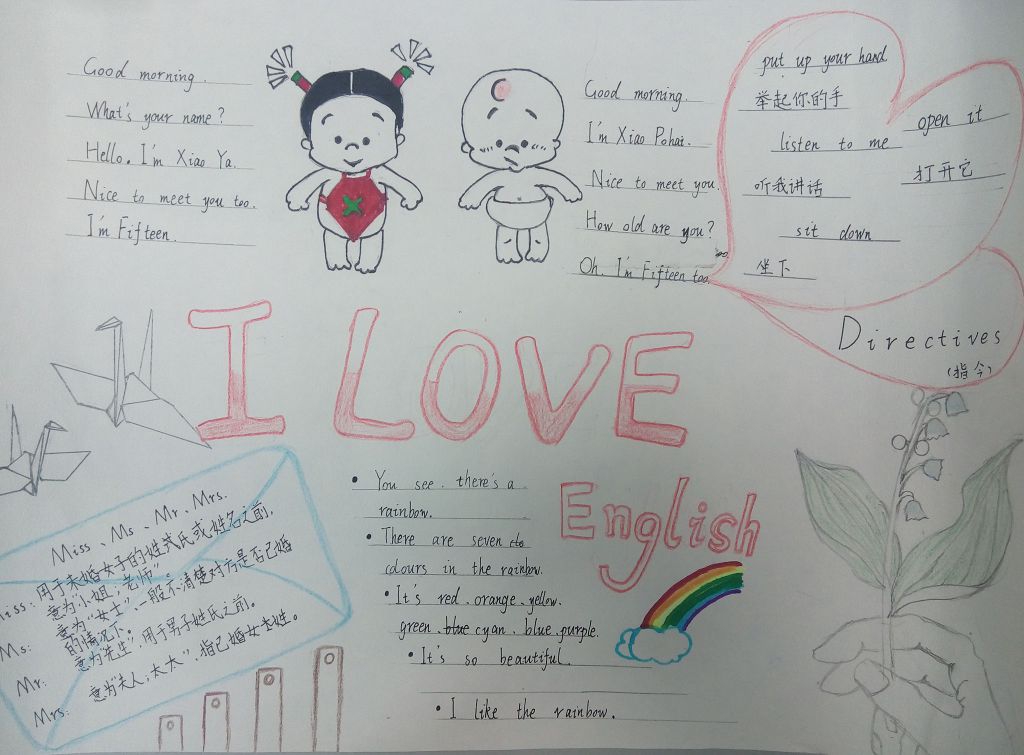 Good morning.
What's your name?
Hello. I'm Xiao Ya.
Nice to meet you too.
I'm Fifteen.
Good morning.
I'm Xiao Pohai.
Nice to meet you.
How old are you?
Oh. I'm Fifteen too.
put up your hand
举起你的手
listen to me
听我讲话
sit down
坐下
open it
打开它
Directives
(指令)
I LOVE
English
Miss、Ms、Mr、Mrs.
Miss: 用于未婚女子的姓氏或姓名之前,
意为"小姐;老师"
Ms: 意为"女士",一般不清楚对方是否已婚
的情况下
Mr: 意为"先生",用于男子姓氏之前。
Mrs: 意为"夫人;太太",指已婚女性。
• You see. there's a
rainbow.
• There are seven
colours in the rainbow.
• It's red. orange. yellow.
green. blue cyan. blue. purple.
• It's so beautiful.
• I like the rainbow.